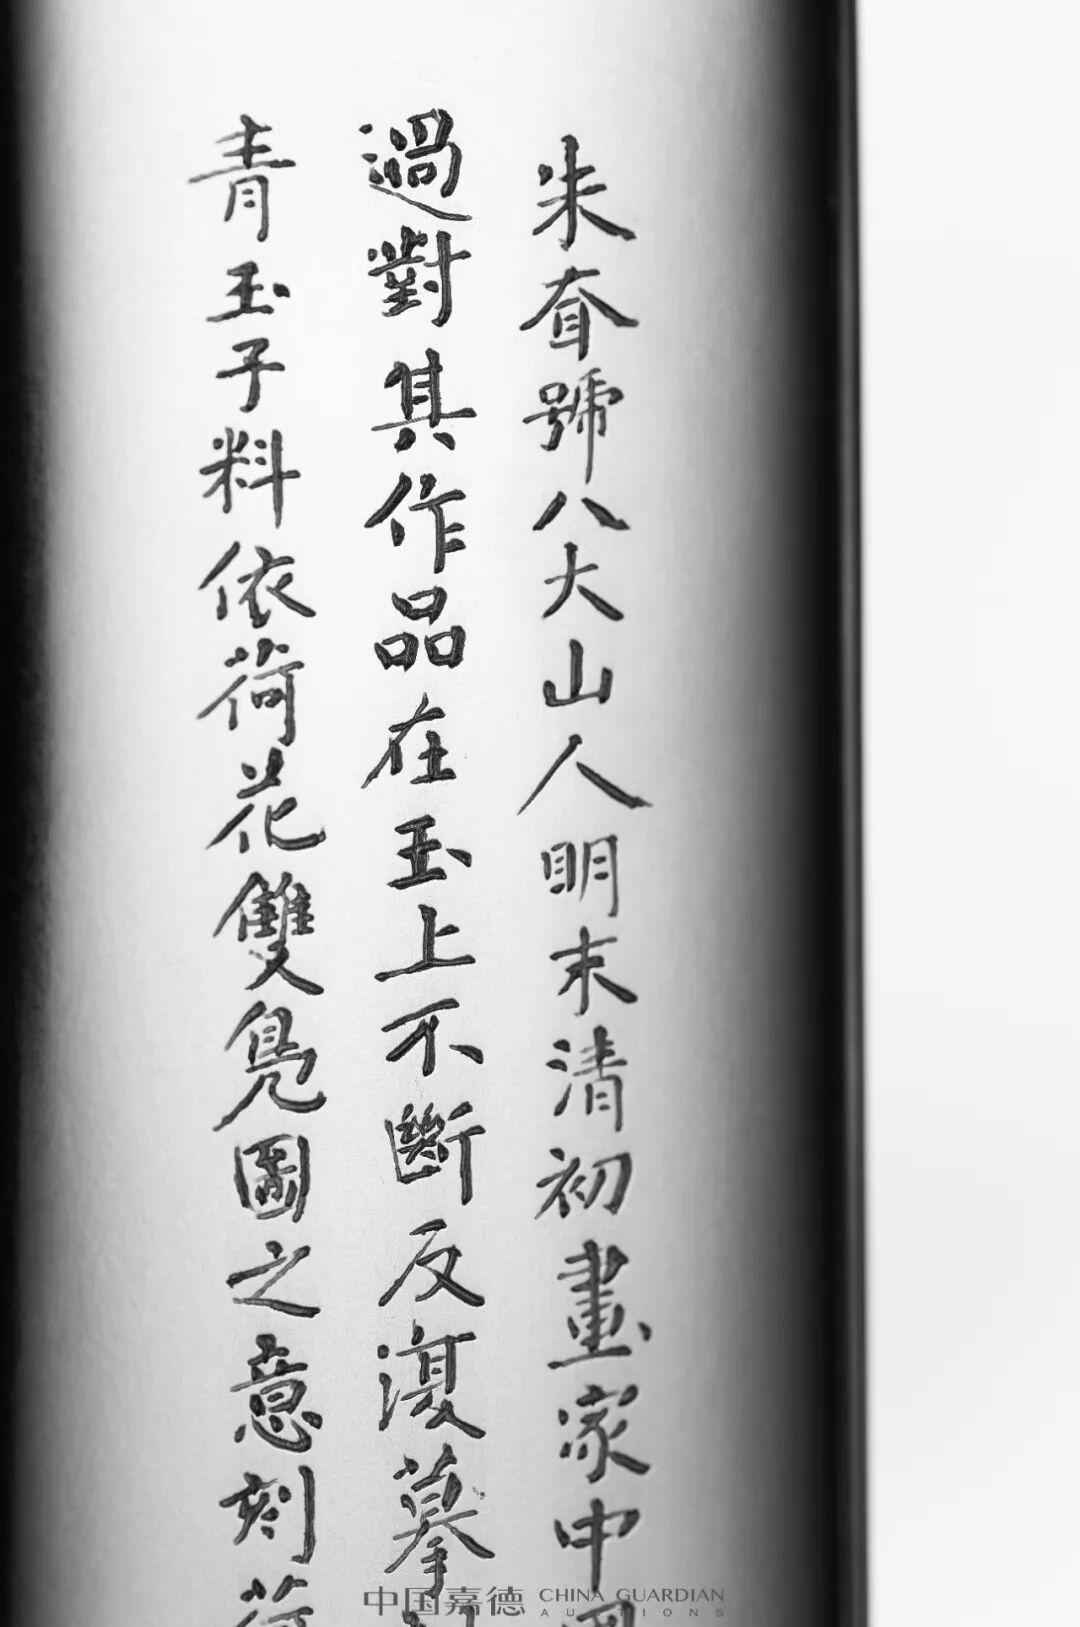 朱耷號八大山人明末清初畫家中
過對其作品在玉上不斷反復摹
青玉子料依荷花雙鳧圖之意刻荷
中国嘉德 CHINA GUARDIAN
AUCTIONS